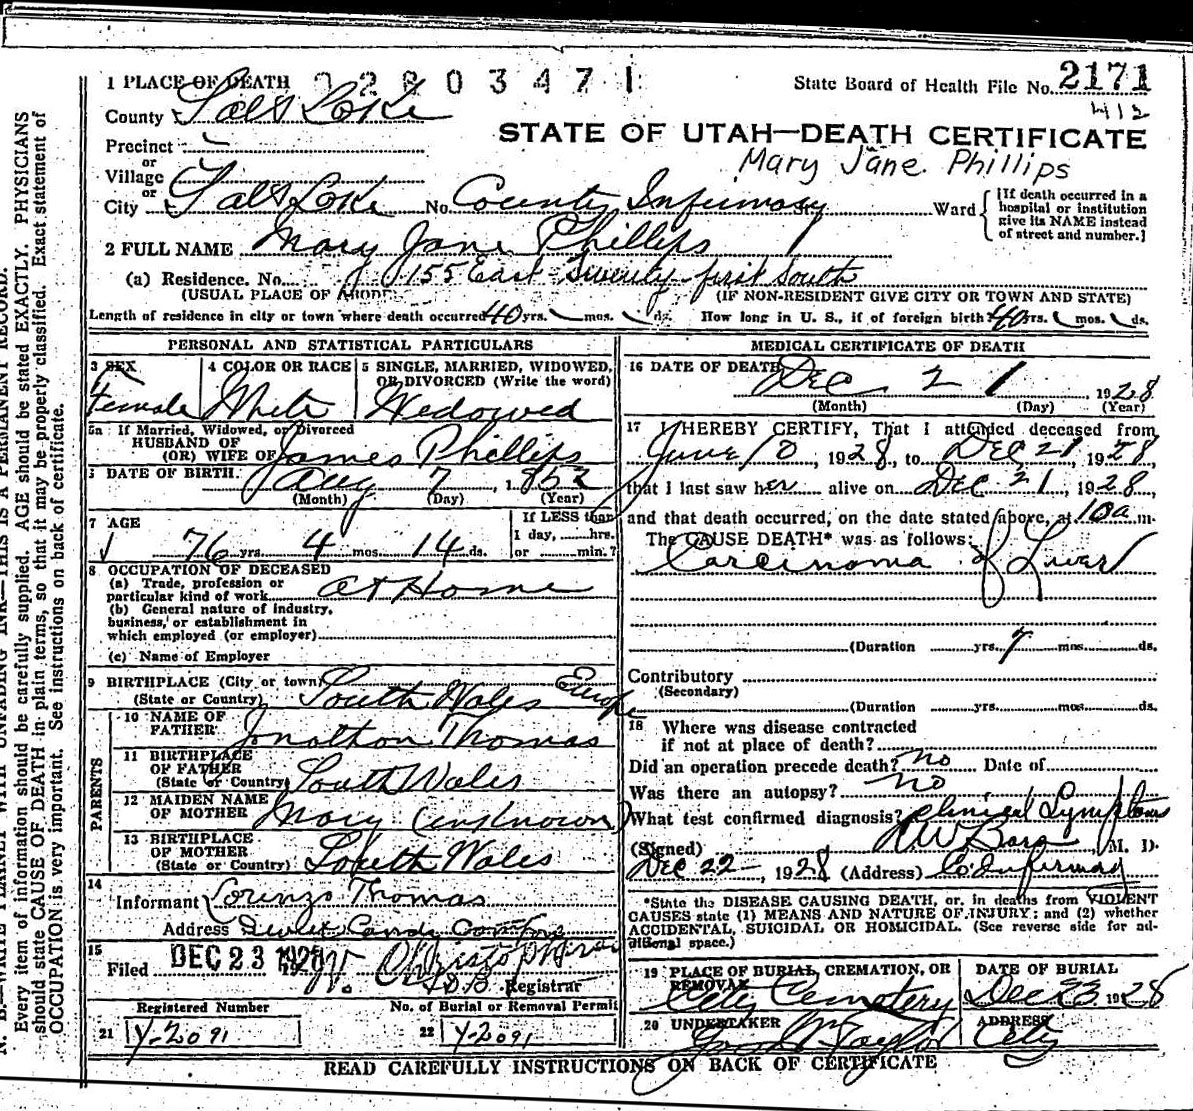 1 PLACE OF DEATH 02803471 State Board of Health File No. 2171
County Salt Lake 412
STATE OF UTAH—DEATH CERTIFICATE
Precinct
or
Mary Jane Phillips
Village
or
City Salt Lake No. County Infirmary St. Ward {[If death occurred in a hospital or institution give its NAME instead of street and number.]
2 FULL NAME Mary Jane Phillips
(a) Residence. No. 155 East Twenty-first South
(USUAL PLACE OF ABODE) (IF NON-RESIDENT GIVE CITY OR TOWN AND STATE)
Length of residence in city or town where death occurred 40 yrs. mos. ds. How long in U. S., if of foreign birth? 40 yrs. mos. ds.
PERSONAL AND STATISTICAL PARTICULARS
3 SEX
Female
4 COLOR OR RACE
White
5 SINGLE, MARRIED, WIDOWED,
OR DIVORCED (Write the word)
Widowed
5a If Married, Widowed, or Divorced
HUSBAND OF
(OR) WIFE OF James Phillips
6 DATE OF BIRTH Aug 7, 1852
(Month) (Day) (Year)
7 AGE
76 yrs. 4 mos. 14 ds.
If LESS than
1 day, hrs.
or min.?
8 OCCUPATION OF DECEASED
(a) Trade, profession or
particular kind of work at Home
(b) General nature of industry,
business, or establishment in
which employed (or employer)
(c) Name of Employer
9 BIRTHPLACE (City or town)
(State or Country) South Wales Europe
PARENTS
10 NAME OF
FATHER Jonathon Thomas
11 BIRTHPLACE
OF FATHER
(State or Country) South Wales
12 MAIDEN NAME
OF MOTHER Mary (unknown)
13 BIRTHPLACE
OF MOTHER
(State or Country) South Wales
14
Informant Lorenzo Thomas
Address Sweet Candy Company
15
Filed DEC 23 1928 192
Registrar
Registered Number
21 Y-2091
No. of Burial or Removal Permit
22 Y-2091
MEDICAL CERTIFICATE OF DEATH
16 DATE OF DEATH Dec 21 1928
(Month) (Day) (Year)
17 I HEREBY CERTIFY, That I attended deceased from
June 10, 1928, to Dec 21, 1928
that I last saw her alive on Dec 21, 1928,
and that death occurred, on the date stated above, at 10a m.
The CAUSE DEATH* was as follows:
Carcinoma of Liver
(Duration yrs. 7 mos. ds.
Contributory
(Secondary)
(Duration yrs. mos. ds.
18 Where was disease contracted
if not at place of death?
Did an operation precede death? no Date of
Was there an autopsy? no
What test confirmed diagnosis? clinical Symptoms
(Signed) M. D.
Dec 22, 1928 (Address) Co Infirmary
*State the DISEASE CAUSING DEATH, or, in deaths from VIOLENT
CAUSES state (1) MEANS AND NATURE OF INJURY; and (2) whether
ACCIDENTAL, SUICIDAL OR HOMICIDAL. (See reverse side for ad-
ditional space.)
19 PLACE OF BURIAL, CREMATION, OR
REMOVAL
City Cemetery
DATE OF BURIAL
Dec 23 1928
20 UNDERTAKER
Taylor
ADDRESS
City
READ CAREFULLY INSTRUCTIONS ON BACK OF CERTIFICATE
N. B.—WRITE PLAINLY WITH UNFADING INK—THIS IS A PERMANENT RECORD.
Every item of information should be carefully supplied. AGE should be stated EXACTLY. PHYSICIANS
should state CAUSE OF DEATH in plain terms, so that it may be properly classified. Exact statement of
OCCUPATION is very important. See instructions on back of certificate.